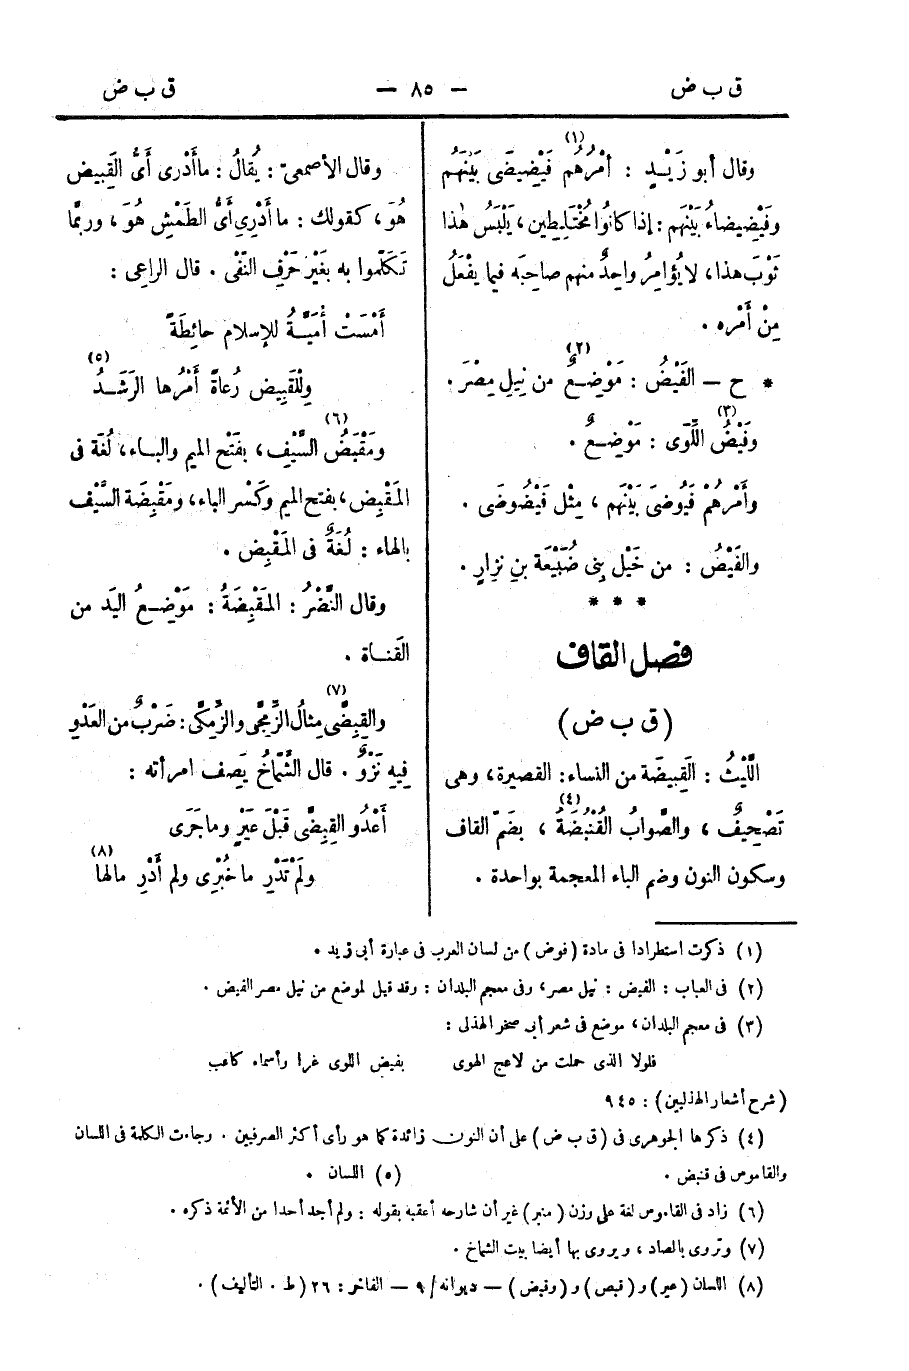 ق ب ض — ٨٥ — ق ب ض
وقال أبو زَيْـدٍ : أمْرُهُم فَيْضِيضَى بَيْنَهُم (١)
وفَيْضِيضاءُ بَيْنَهم : إذا كانُوا مُخْتَلِطِين ، يَلْبَسُ هٰذا
ثَوْبَ هذا ، لا يُؤامِرُ واحِدٌ منهم صاحِبَه فيما يفْعَلُ
مِنْ أَمْرِه .
* ح — الفَيْضُ : مَوْضِعٌ من نِيلِ مِصْرَ . (٢)
وفَيْضُ اللِّوَى : مَوْضِـعٌ . (٣)
وأَمْرهُمْ فَيُوضَى بَيْنَهم ، مِثْل فَيْضُوضَى .
والفَيْضُ : من خَيْلِ بنى ضُبَيْعَة بنِ نِزارٍ .
* * *
فصل القاف
(ق ب ض)
اللَّيْثُ : القَبِيضَة من النساء : القصيرة ، وهى
تَصْحِيفٌ ، والصَّوابُ القُنْبُضَةُ ، بضَمّ القاف (٤)
وسكون النون وضم الباء المعجمة بواحدة .
وقال الأصمعىّ : يُقالُ : ما أَدْرِى أَىُّ القَبِيض
هُوَ ، كقولك : ما أَدْرِى أَىُّ الطَمْشِ هُوَ ، وربّما
تَكَلَّموا به بغَيْرِ حَرْفِ النَّفْى . قال الراعِى :
أَمْسَتْ أُمَيَّـةُ للإسلام حائِطَةً
ولِلْقَبِيض رُعاةً أَمْرُها الرَشَـدُ (٥)
ومَقْبَضُ السَّيْفِ ، بفَتْح الميم والبـاء ، لُغَة فى (٦)
المَقْبِض ، بفتح الميم وكَسْر الباء ، ومَقْبِضَة السَّيْف
بالهاء : لُغَةٌ فى المَقْبِض .
وقال النَّضْرُ : المَقْبِضَةُ : مَوْضِـعُ اليَد من
القَنـاة .
والقِبِضَّى مِثالُ الزِّمِجَّى والزِّمِكَّى : ضَرْبٌ من العَدْوِ (٧)
فِيه نَزْوٌ . قال الشَّمّاخُ يَصِف امرأته :
أَعَدْوَ القِبِضَّى قَبْلَ عَيْرٍ وما جَرَى
ولَمْ تَدْرِ ما خُبْرِى ولم أَدْرِ مالها (٨)
(١) ذكرت استطرادا فى مادة (فوض) من لسان العرب فى عبارة أبى زيد .
(٢) فى العباب : الفيض : نيل مصر ، وفى معجم البلدان : وقد قيل لموضع من نيل مصر الفيض .
(٣) فى معجم البلدان ، موضع فى شعر أبى صخر الهذلى :
فلولا الذى حملت من لاعج الهوى بفيض اللوى غرا وأسماء كاعب
(شرح أشعار الهذليين) : ٩٤٥
(٤) ذكرها الجوهرى فى (ق ب ض) على أن النون زائدة كما هو رأى أكثر الصرفيين . وجاءت الكلمة فى اللسان
والقاموس فى قنبض . (٥) اللسان .
(٦) زاد فى القاموس لغة على وزن (منبر) غير أن شارحه أعقبه بقوله : ولم أجد أحدا من الأئمة ذكره .
(٧) وتروى بالصاد ، ويروى بها أيضا بيت الشماخ .
(٨) اللسان (عير) و (قبص) و (وقبض) — ديوانه / ٩ — الفاخر : ٢٦ (ط . التأليف) .